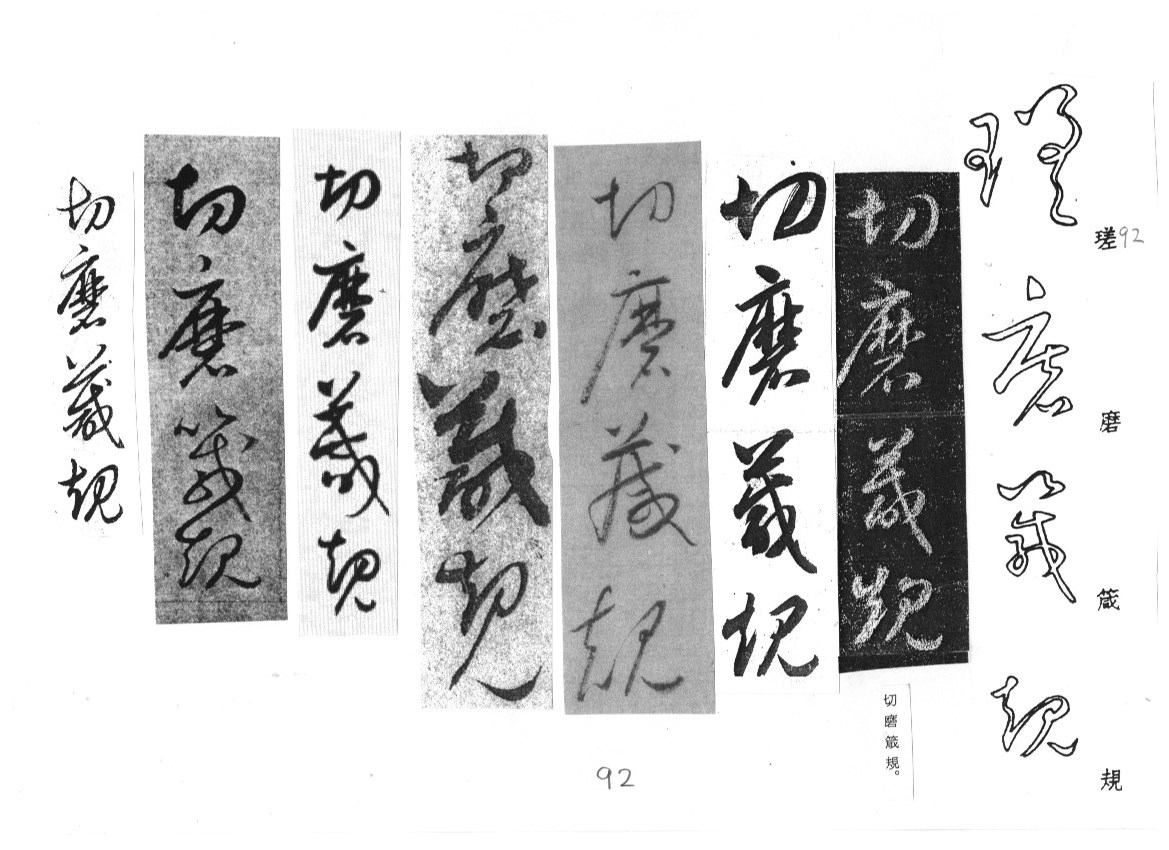 瑳92
磨
箴
規
瑳磨箴規
切磨箴規
切磨箴規。
切磨箴規
切磨箴規
切磨箴規
切磨箴規
切磨箴規
切磨箴規
92